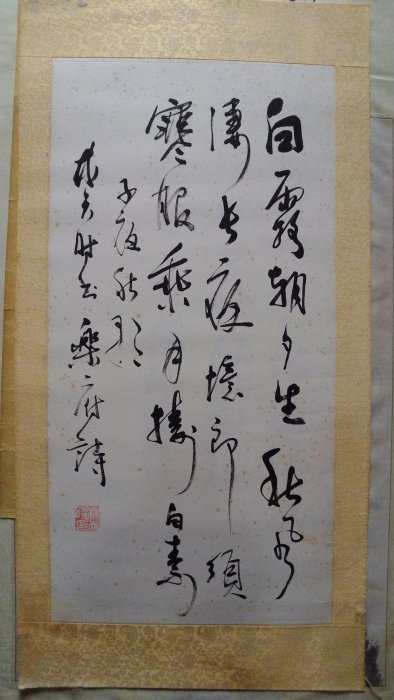 白露朝夕生秋風
淒長夜憶郎須
寒服乘月擣白素
子夜秋歌
時書樂府詩